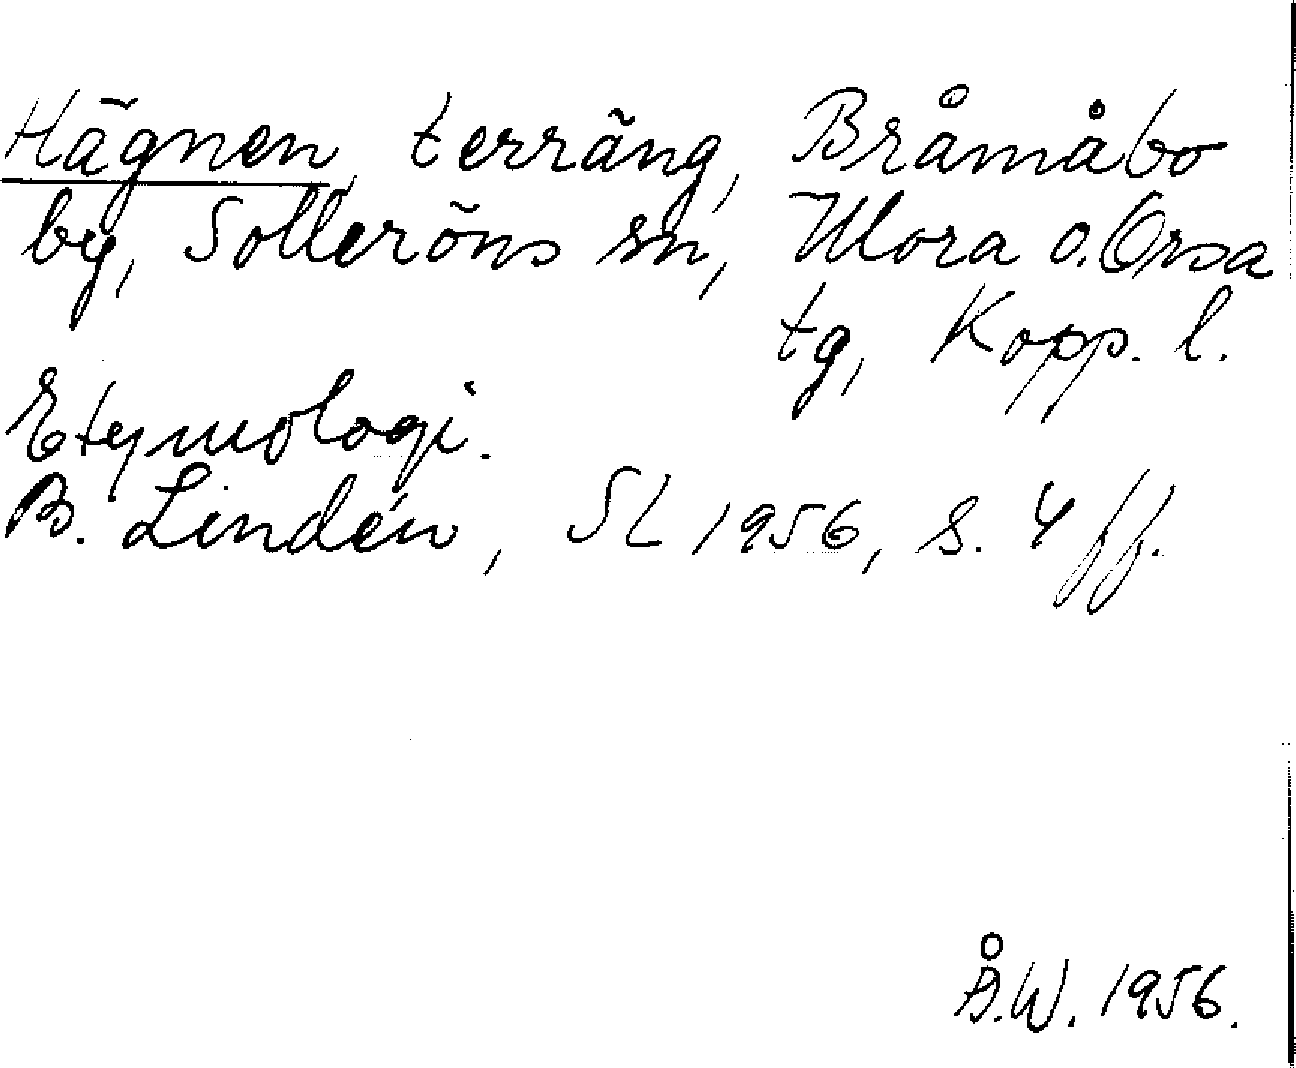 Hägnen, terräng, Bråmåbo
by, Solleröns sn, Mora o. Orsa
tg, Kopp. l.
Etymologi.
B. Lindén, SL 1956, s. 4 ff.
Å.W. 1956.